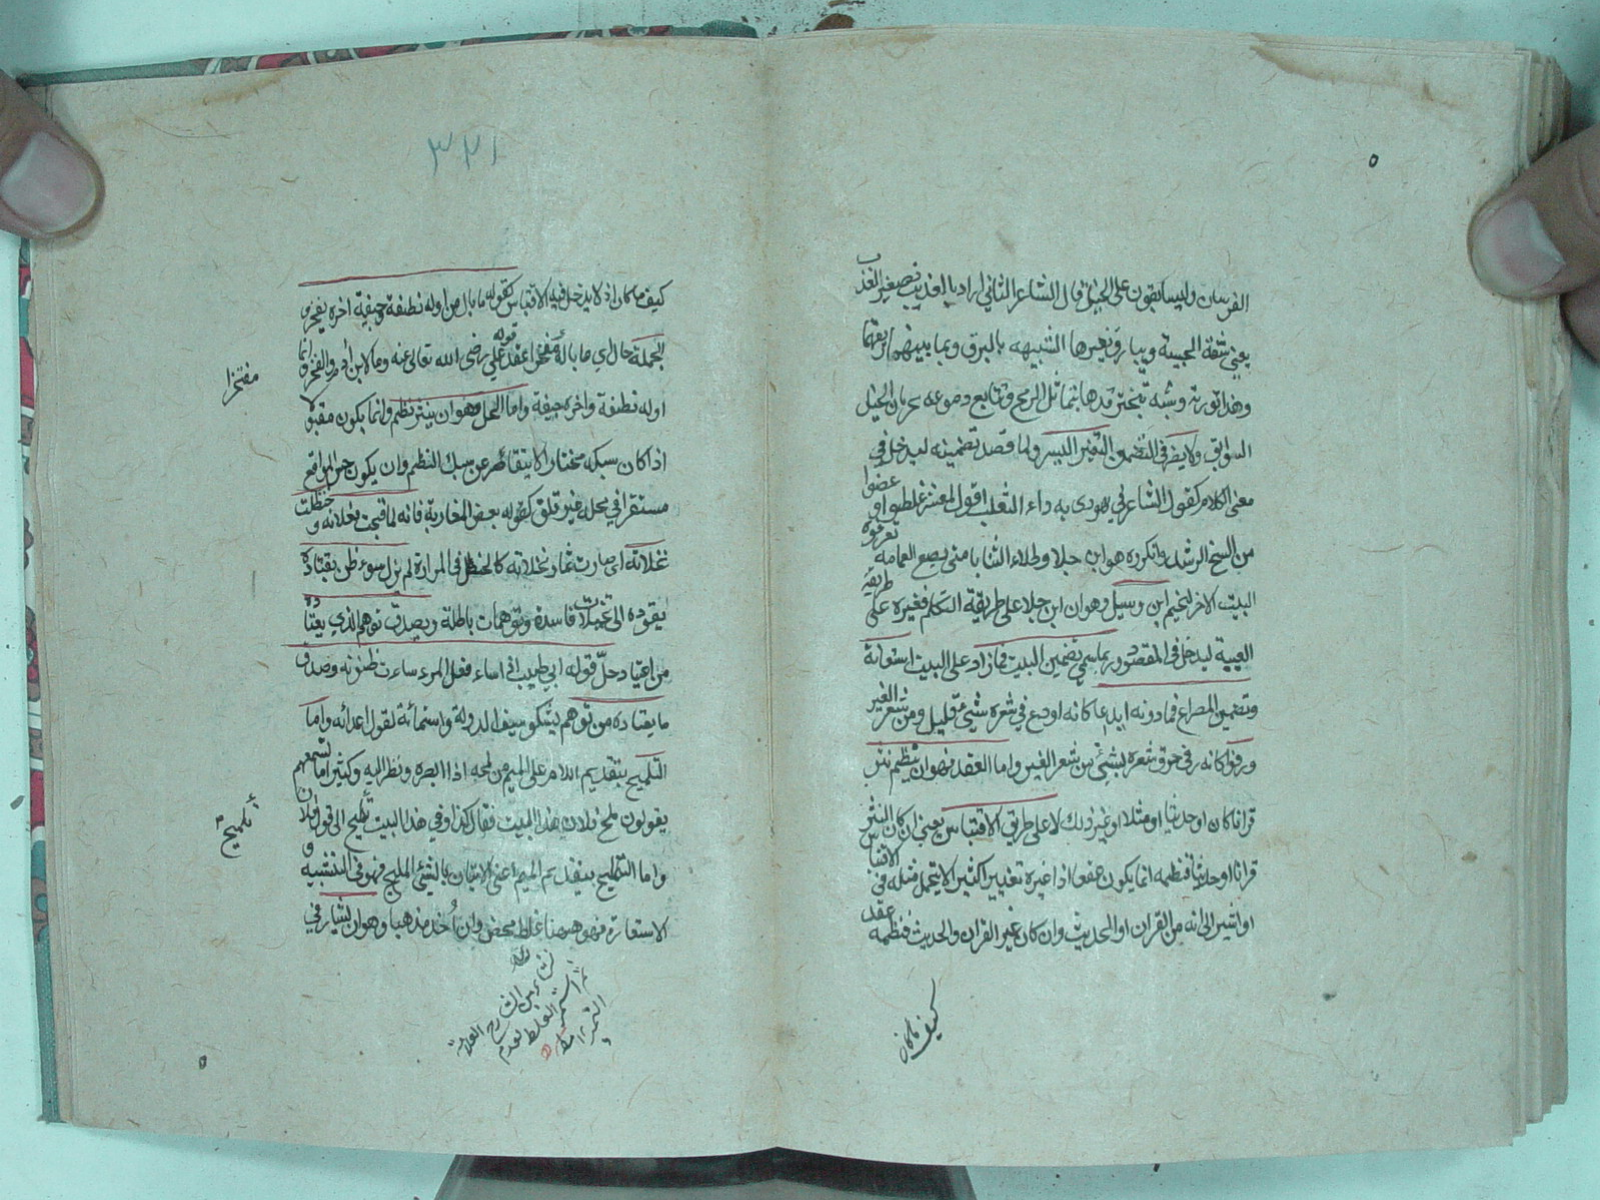 الفرسان وليسابقون على الخيل قال الشاعر الثاني اراد بالعذيب تصغير العذب
يعني شفة الحبيبة وببارق ثغرها الشبيه بالبرق وبما بينهما ريقها
وهذا تورية وشبه تبختر قدها بتمايل الرمح وتتابع دموعه بجريان الخيل
السوابق ولا يضر في التضمين التغير اليسير ولما قصد تضمينه ليدخل في
معنى الكلام كقول الشاعر في يهودي به داء الثعلب اقول لمعشر غلطوا وغضوا
من الشيخ الرشيد وانكروه هو ابن جلا وطلاع الثنايا متى يضع العمامة تعرفوه
البيت الاخر لسحيم ابن وثيل وهو ان ابن جلا على طريقة التكلم فغيره على طريقة
الغيبة ليدخل في المقصود وربما سمي تضمين البيت فما زاد على البيت استعانة
وتضمين المصراع فما دونه ايداعا كانه اودع في شعره شيئ قليل ومن شعر الغير
ورفوا كانه رفي خرق شعره بشيئ من شعر الغير واما العقد فهو ان ينظم نثر
قرانا كان او حديثا او مثلا او غير ذلك لا على طريق الاقتباس يعني ان كان النثر
قرانا او حديثا فنظمه انما يكون عقدا اذا غيره تغييرا كثيرا لا يتحمل مثله في الاقتباس
او اشير الى انه من القران او الحديث وان كان غير القران والحديث فنظمه عقد
كيف ما كان
٣٢١
كيف ما كان اذ لا يدخل فيه الاقتباس كقوله ما بال من اوله نطفة وجيفة اخره يفخر
الجملة حال اي ما باله مفتخرا عقد قوله علي رضي الله تعالى عنه وما لابن ادم والفخر وانما
مفتخرا
اوله نطفة واخره جيفة واما الحل فهو ان ينثر نظم وانما يكون مقبولا
اذا كان سبكه مختارا لا يتقاصر عن سبك النظم وان يكون حسن المواقع
مستقرا في محله غير قلق كقوله بعض المغاربة فانه لما قبحت فعلاته وحنظلت
نخلاته اي صارت ثمار نخلاته كالحنظل في المرارة لم يزل سوء ظن يقتاده
يقوده الى تخيلات فاسدة وتوهمات باطلة ويصدق توهم الذي يعتاده
من اعتياد حل قوله ابي طيب اذا ساء فعل المرء ساءت ظنونه وصدق
ما يعتاده من توهم يشكو سيف الدولة واستماعة لقول اعدائه واما
التلميح بتقديم اللام على الميم من لمحه اذا ابصره ونظر اليه وكثيرا ما تسمعهم
يقولون لمح فلان هذا البيت فقال كذا وفي هذا البيت تلميح الى قول فلان
تلميح
واما التمليح بتقديم الميم اعني الاتيان بالشيئ المليح فهو في التشبيه و
الاستعارة فهو ههنا غلط محض وان أخذ مذهبا وهو ان يشار في